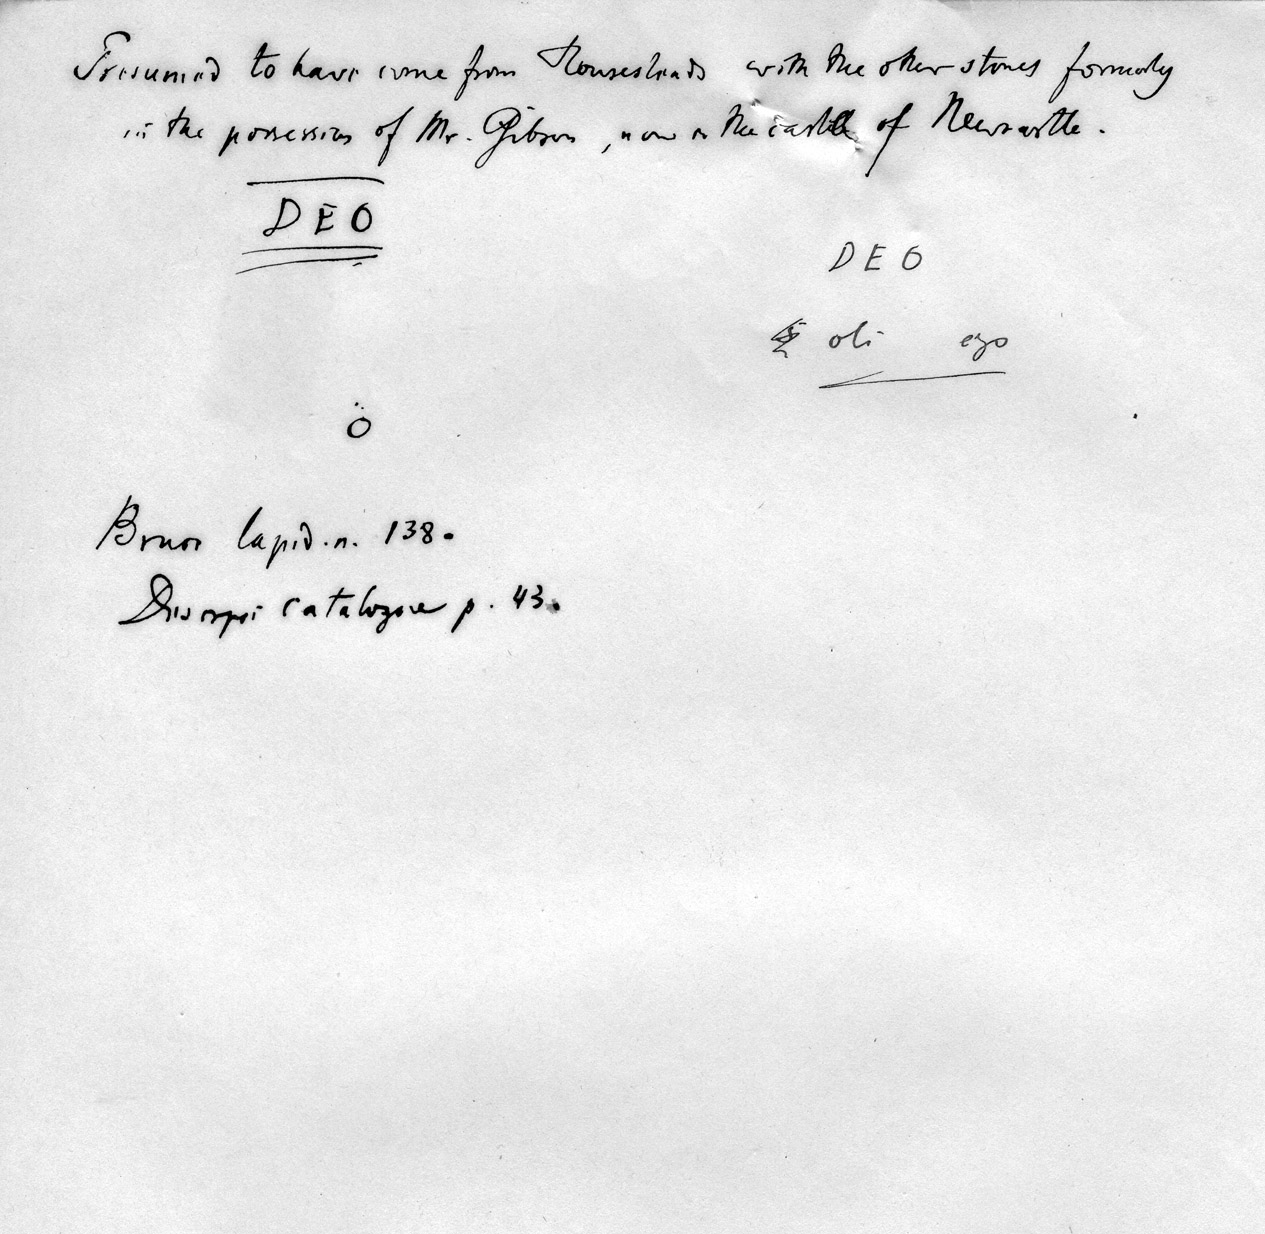 Presumed to have come from Housesteads with the other stones formerly
in the possession of Mr. Gibson, now in the castle of Newcastle.
DEO
DEO
oli ego
o
Bruce lapid. n. 138.
catalogue p. 43.